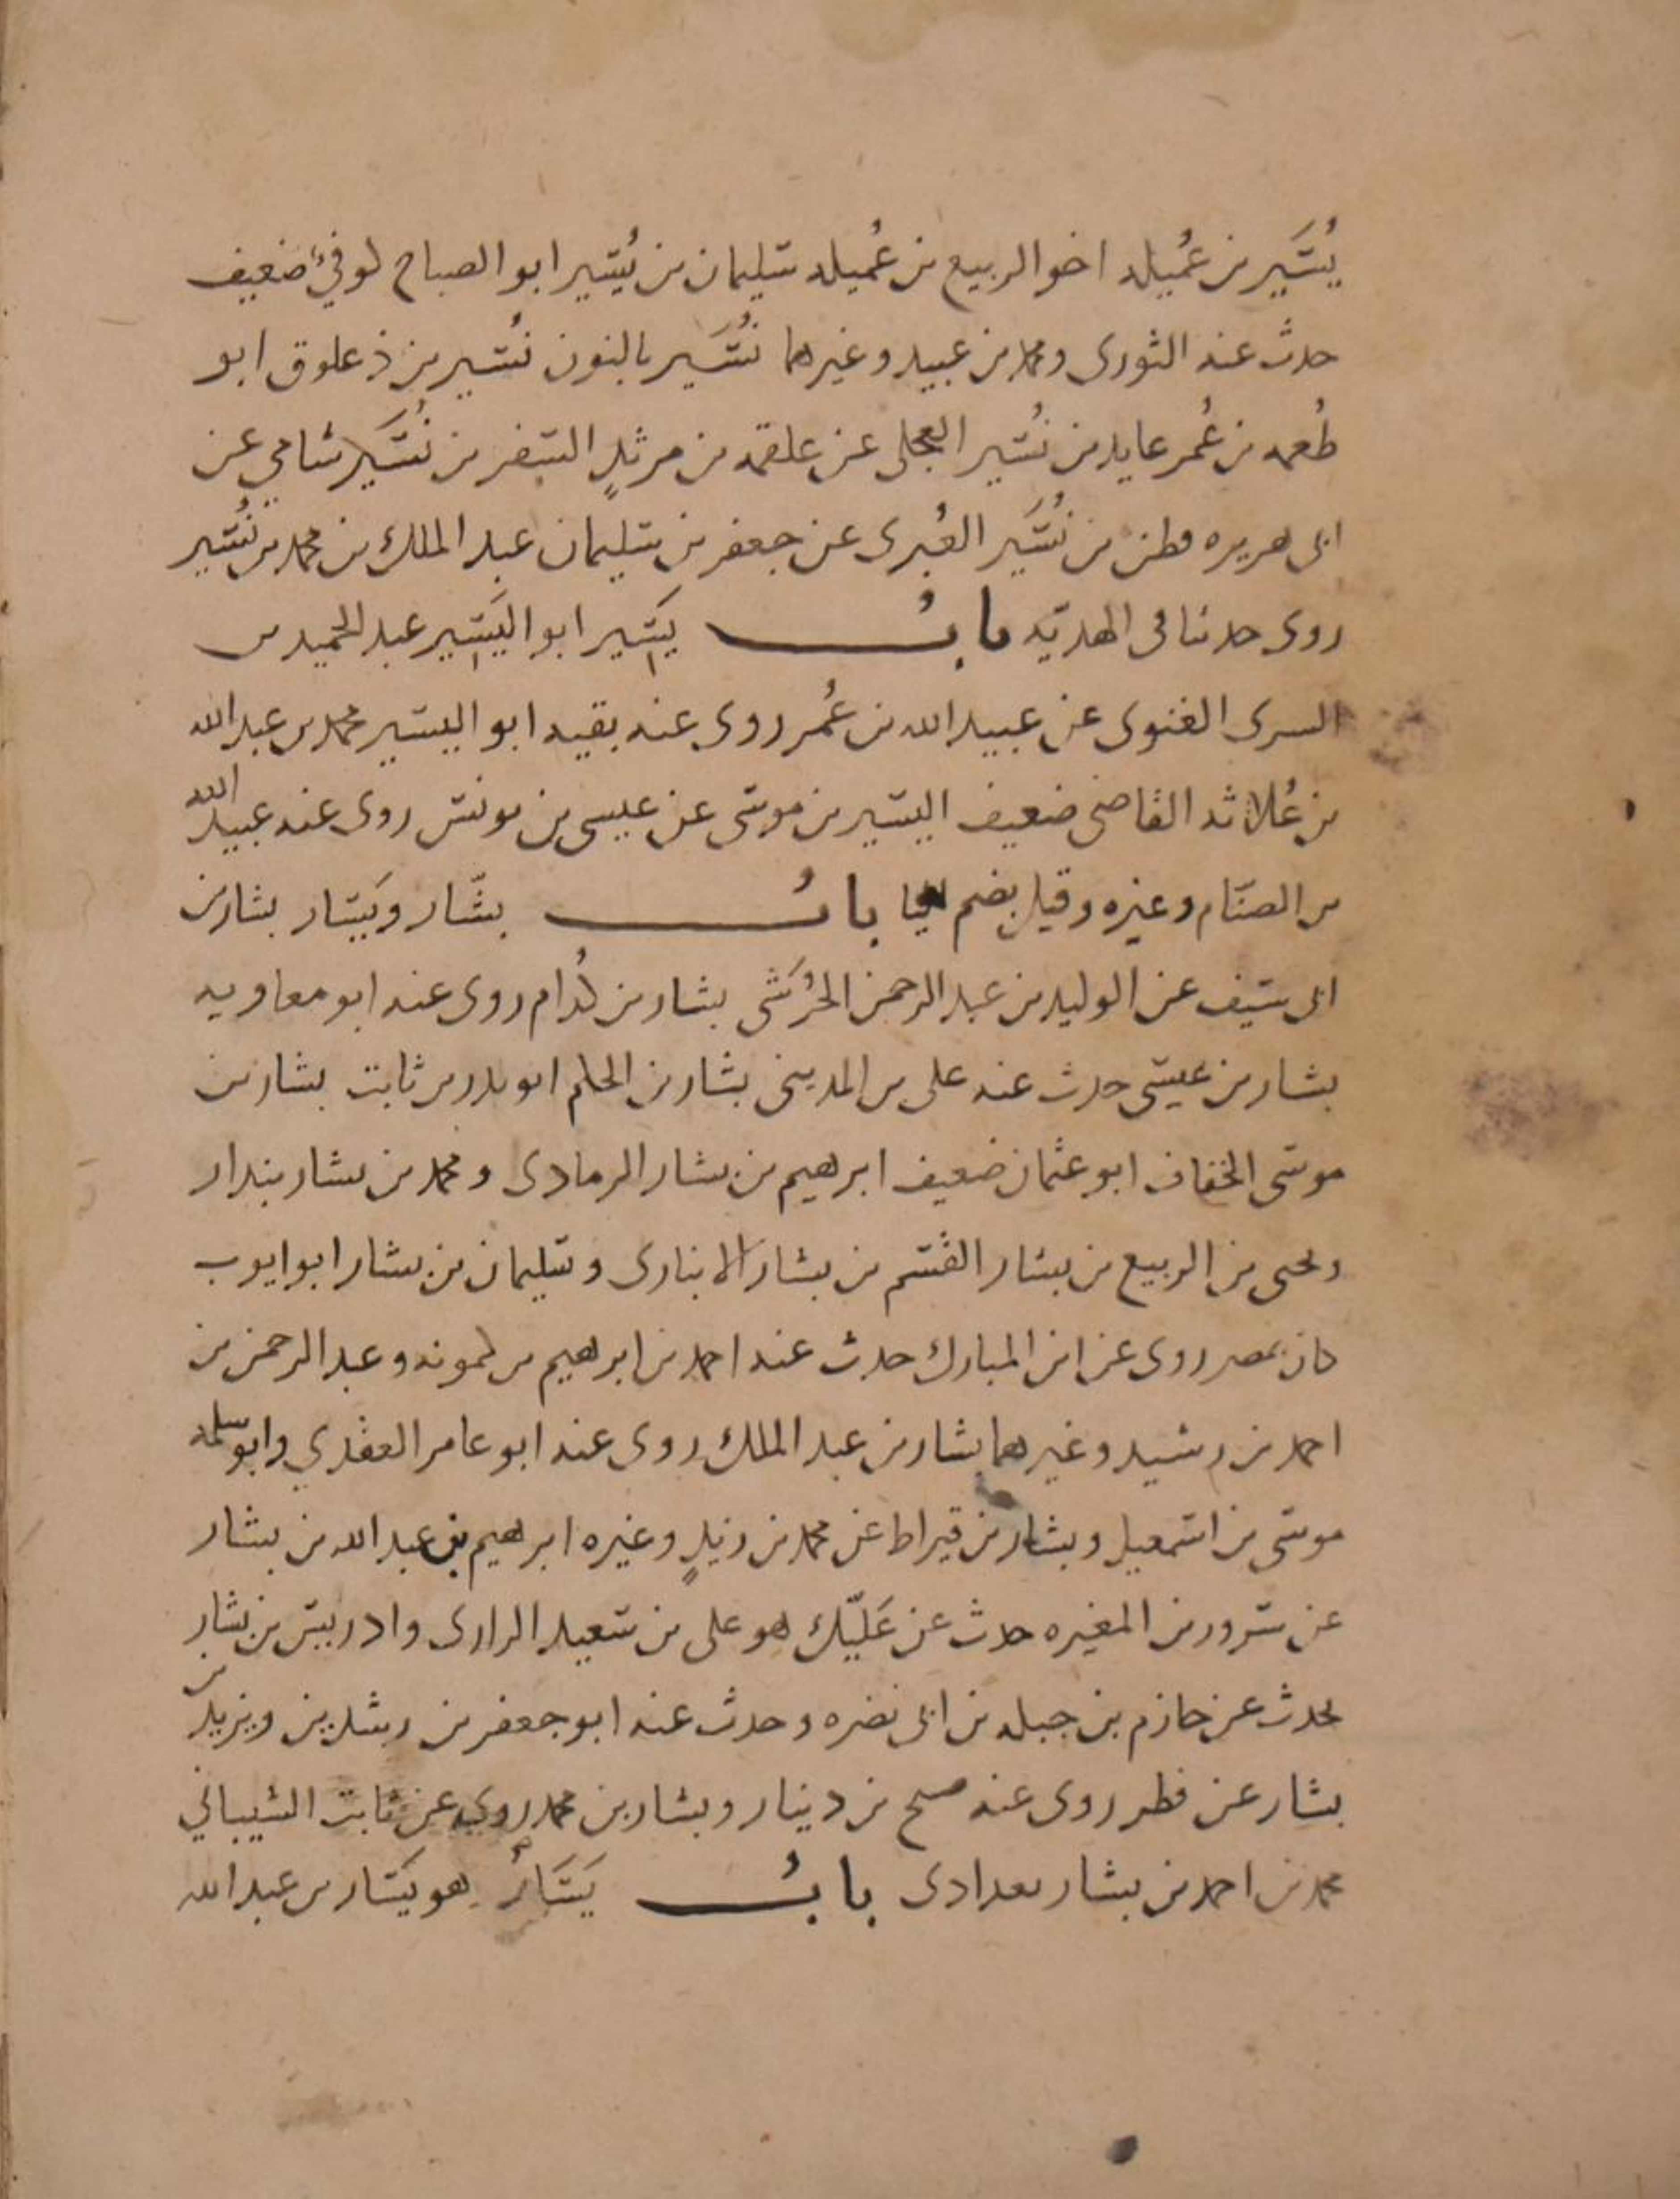 يُسَير بن عُميله اخو الربيع بن عُميله سليمان بن يُسير ابو الصباح كوفيّ ضعيف
حدث عنه الثورى ومحمد بن عبيد وغيرهما نُسَير بالنون نُسير بن ذعلوق ابو
طُعمه بن عُمر عايد بن نُسير العجلى عن علقمه بن مرثدٍ السفر بن نُسَير شامي عن
ابى هريره قطن بن نُسَير الغُبرى عن جعفر بن سليمان عبد الملك بن محمد بن نُسَير
روى حدثنا فى الهديّه بابُ يَسير ابو اليَسير عبد الحميد بن
السرى الغنوى عن عبيد الله بن عُمر روى عنه بقيه ابو اليسير محمد بن عبد الله
بن عُلاثه القاضى ضعيف اليسير بن موسى عن عيسى بن يونس روى عنه عبيد الله
بن الصنّام وغيره وقيل بضم اليا بابُ بشّار ويَسَار بشار بن
ابى سيف عن الوليد بن عبد الرحمن الجُرَشى بشار بن كُدام روى عنه ابو معاويه
بشار بن عيسى حدث عنه على بن المدينى بشار بن الحكم ابو بدر بن ثابت بشار بن
موسى الخفاف ابو عثمان ضعيف ابرهيم بن بشار الرمادى ومحمد بن بشار بندار
ويحيى بن الربيع بن بشار القسم بن بشار الانبارى وسليمان بن بشار ابو ايوب
كان بمصر روى عن ابن المبارك حدث عنه احمد بن ابرهيم بن كمونه وعبد الرحمن بن
احمد بن رشيد وغيرهما بشار بن عبد الملك روى عنه ابو عامر العقدي وابو سلمه
موسى بن اسمعيل وبشار بن قيراط عن محمد بن زيدٍ وغيره ابرهيم بن عبد الله بن بشار
عن سرور بن المغيره حدث عن عَليّك هو على بن سعيد الرازى وادريس بن بشار
يحدث عن خازم بن جبله بن ابى نضره وحدث عنه ابو جعفر بن رشدين ويزيد بن
بشار عن فطر روى عنه صبح بن دينار وبشار بن محمد روى عن ثابت الشيباني
محمد بن احمد بن بشار بغدادى بابُ يَسَارُ هو يَسَار بن عبد الله